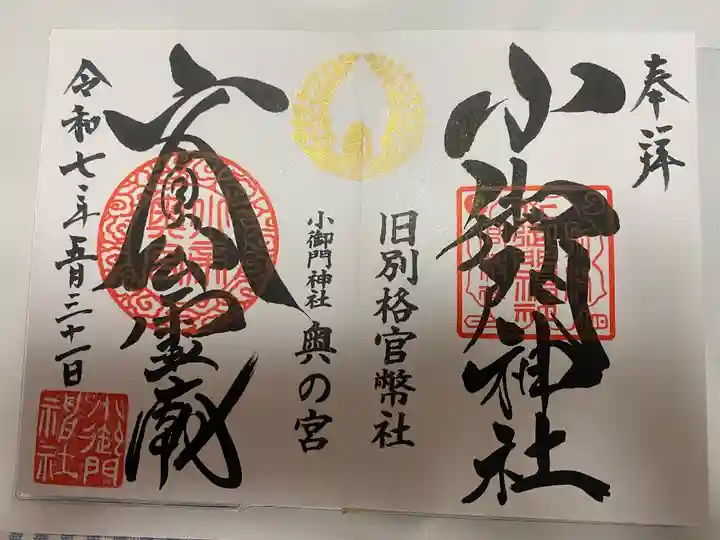 奉拝
小御門神社
旧別格官幣社
小御門神社 奥の宮
文貞公霊廟
令和七年五月三十一日
小御門神社